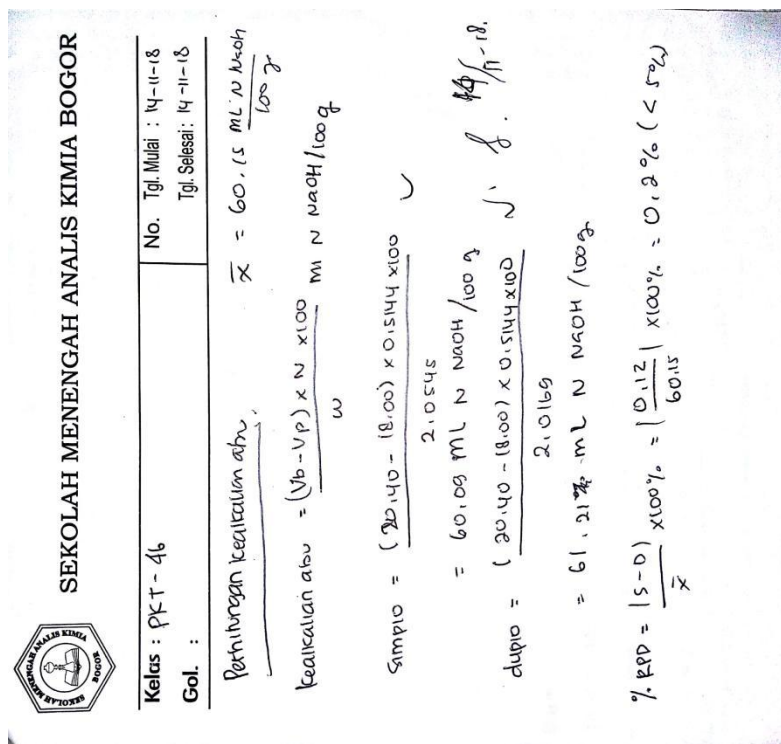 SEKOLAH MENENGAH ANALIS KIMIA BOGOR
SEKOLAH MENENGAH ANALIS KIMIA
BOGOR
Kelas : PKT - 46
Gol. :
No. Tgl. Mulai : 14-11-18
Tgl. Selesai : 14-11-18
Perhitungan kealkalian abu.
x̄ = 60,15 mL N NaOH / 100 g
kealkalian abu = (Vb - Vp) x N x100 / w ml N NaOH/100g
simplo = (20,40 - 18,00) x 0,5144 x100 / 2,0545
= 60,09 mL N NaOH/100 g
duplo = (20,40 - 18,00) x 0,5144 x100 / 2,0169
= 61,21 mL N NaOH/100g
% RPD = |S-D| / x̄ x100% = |0,12 / 60,15| x100% = 0,2% (< 5%)